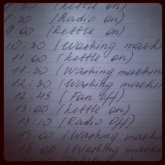 (Kettle on)
30 (Radio on)
9.00 (Kettle on)
10.30 (Washing machin
11.00 (Kettle on)
11.30 (Washing machin
12.30 (Washing machin
12.45 (Fan off)
13.00 (Kettle on)
13.10 (Radio off)
15.00 (Washing mach
16.00 (Washing mach